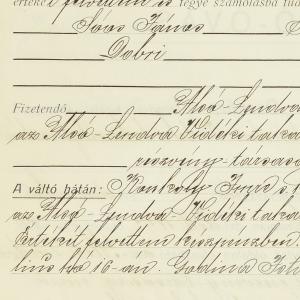 értékét felvettem és tegye számolásba tud
Sáos János
Dobri
Fizetendő Alsó-Lendva
az Alsó-Lendva Vidéki taka
részvény-társasá
A váltó hátán: Konkoly Imre s. k.
az Alsó-Lendva-Vidéki taka
Értékét felvettem készpénzben.
lius hó 16-án. Godina Ist